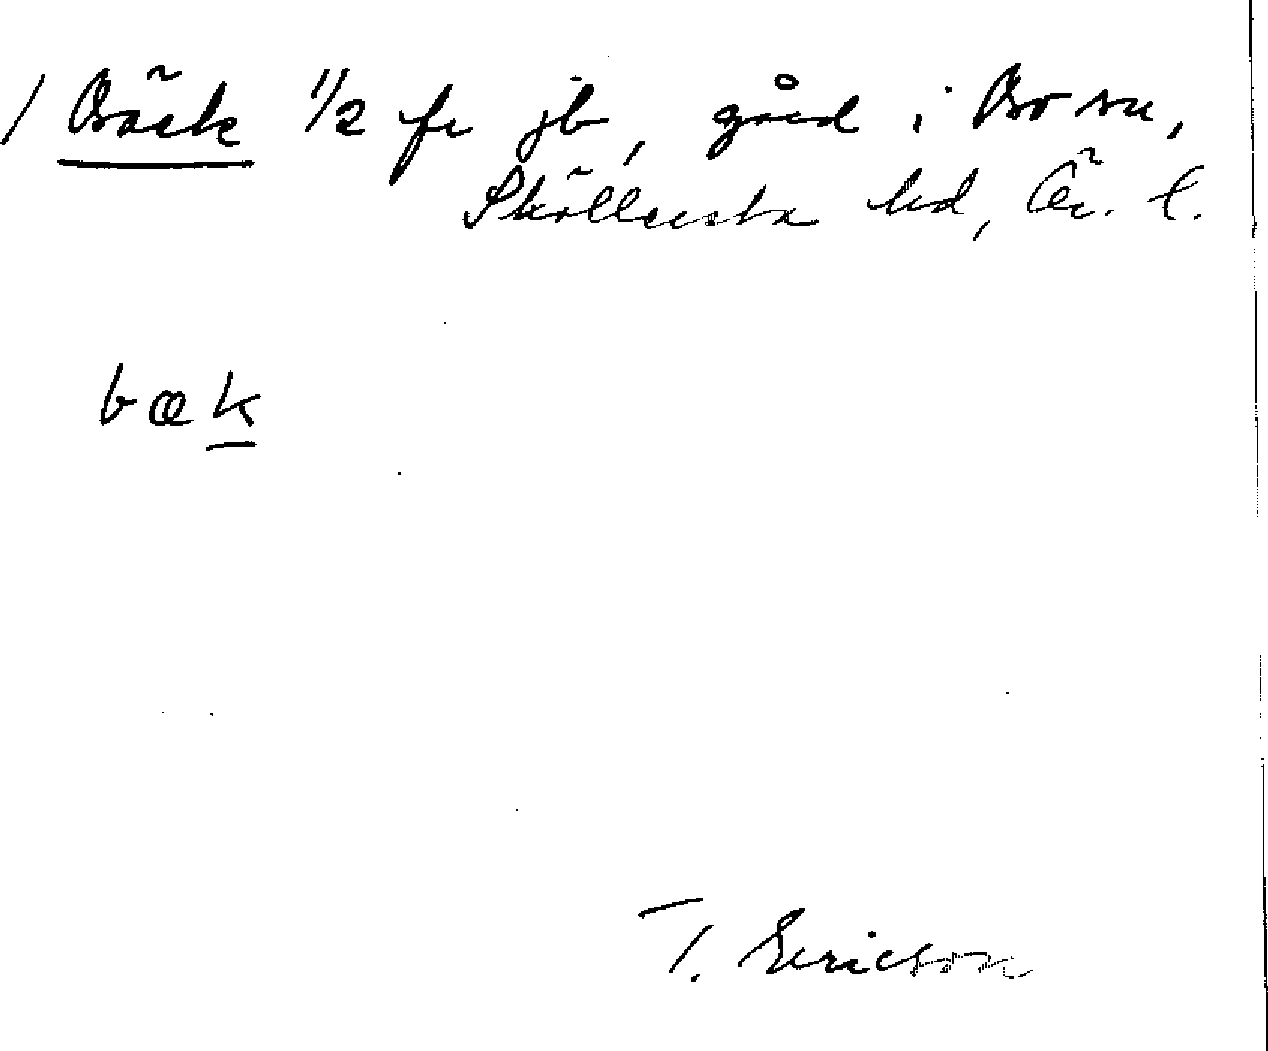 / Bäck 1/2 fr jb, gård i Bo sn,
Sköllersta hd, Ör. l.
bæk
T. Ericson